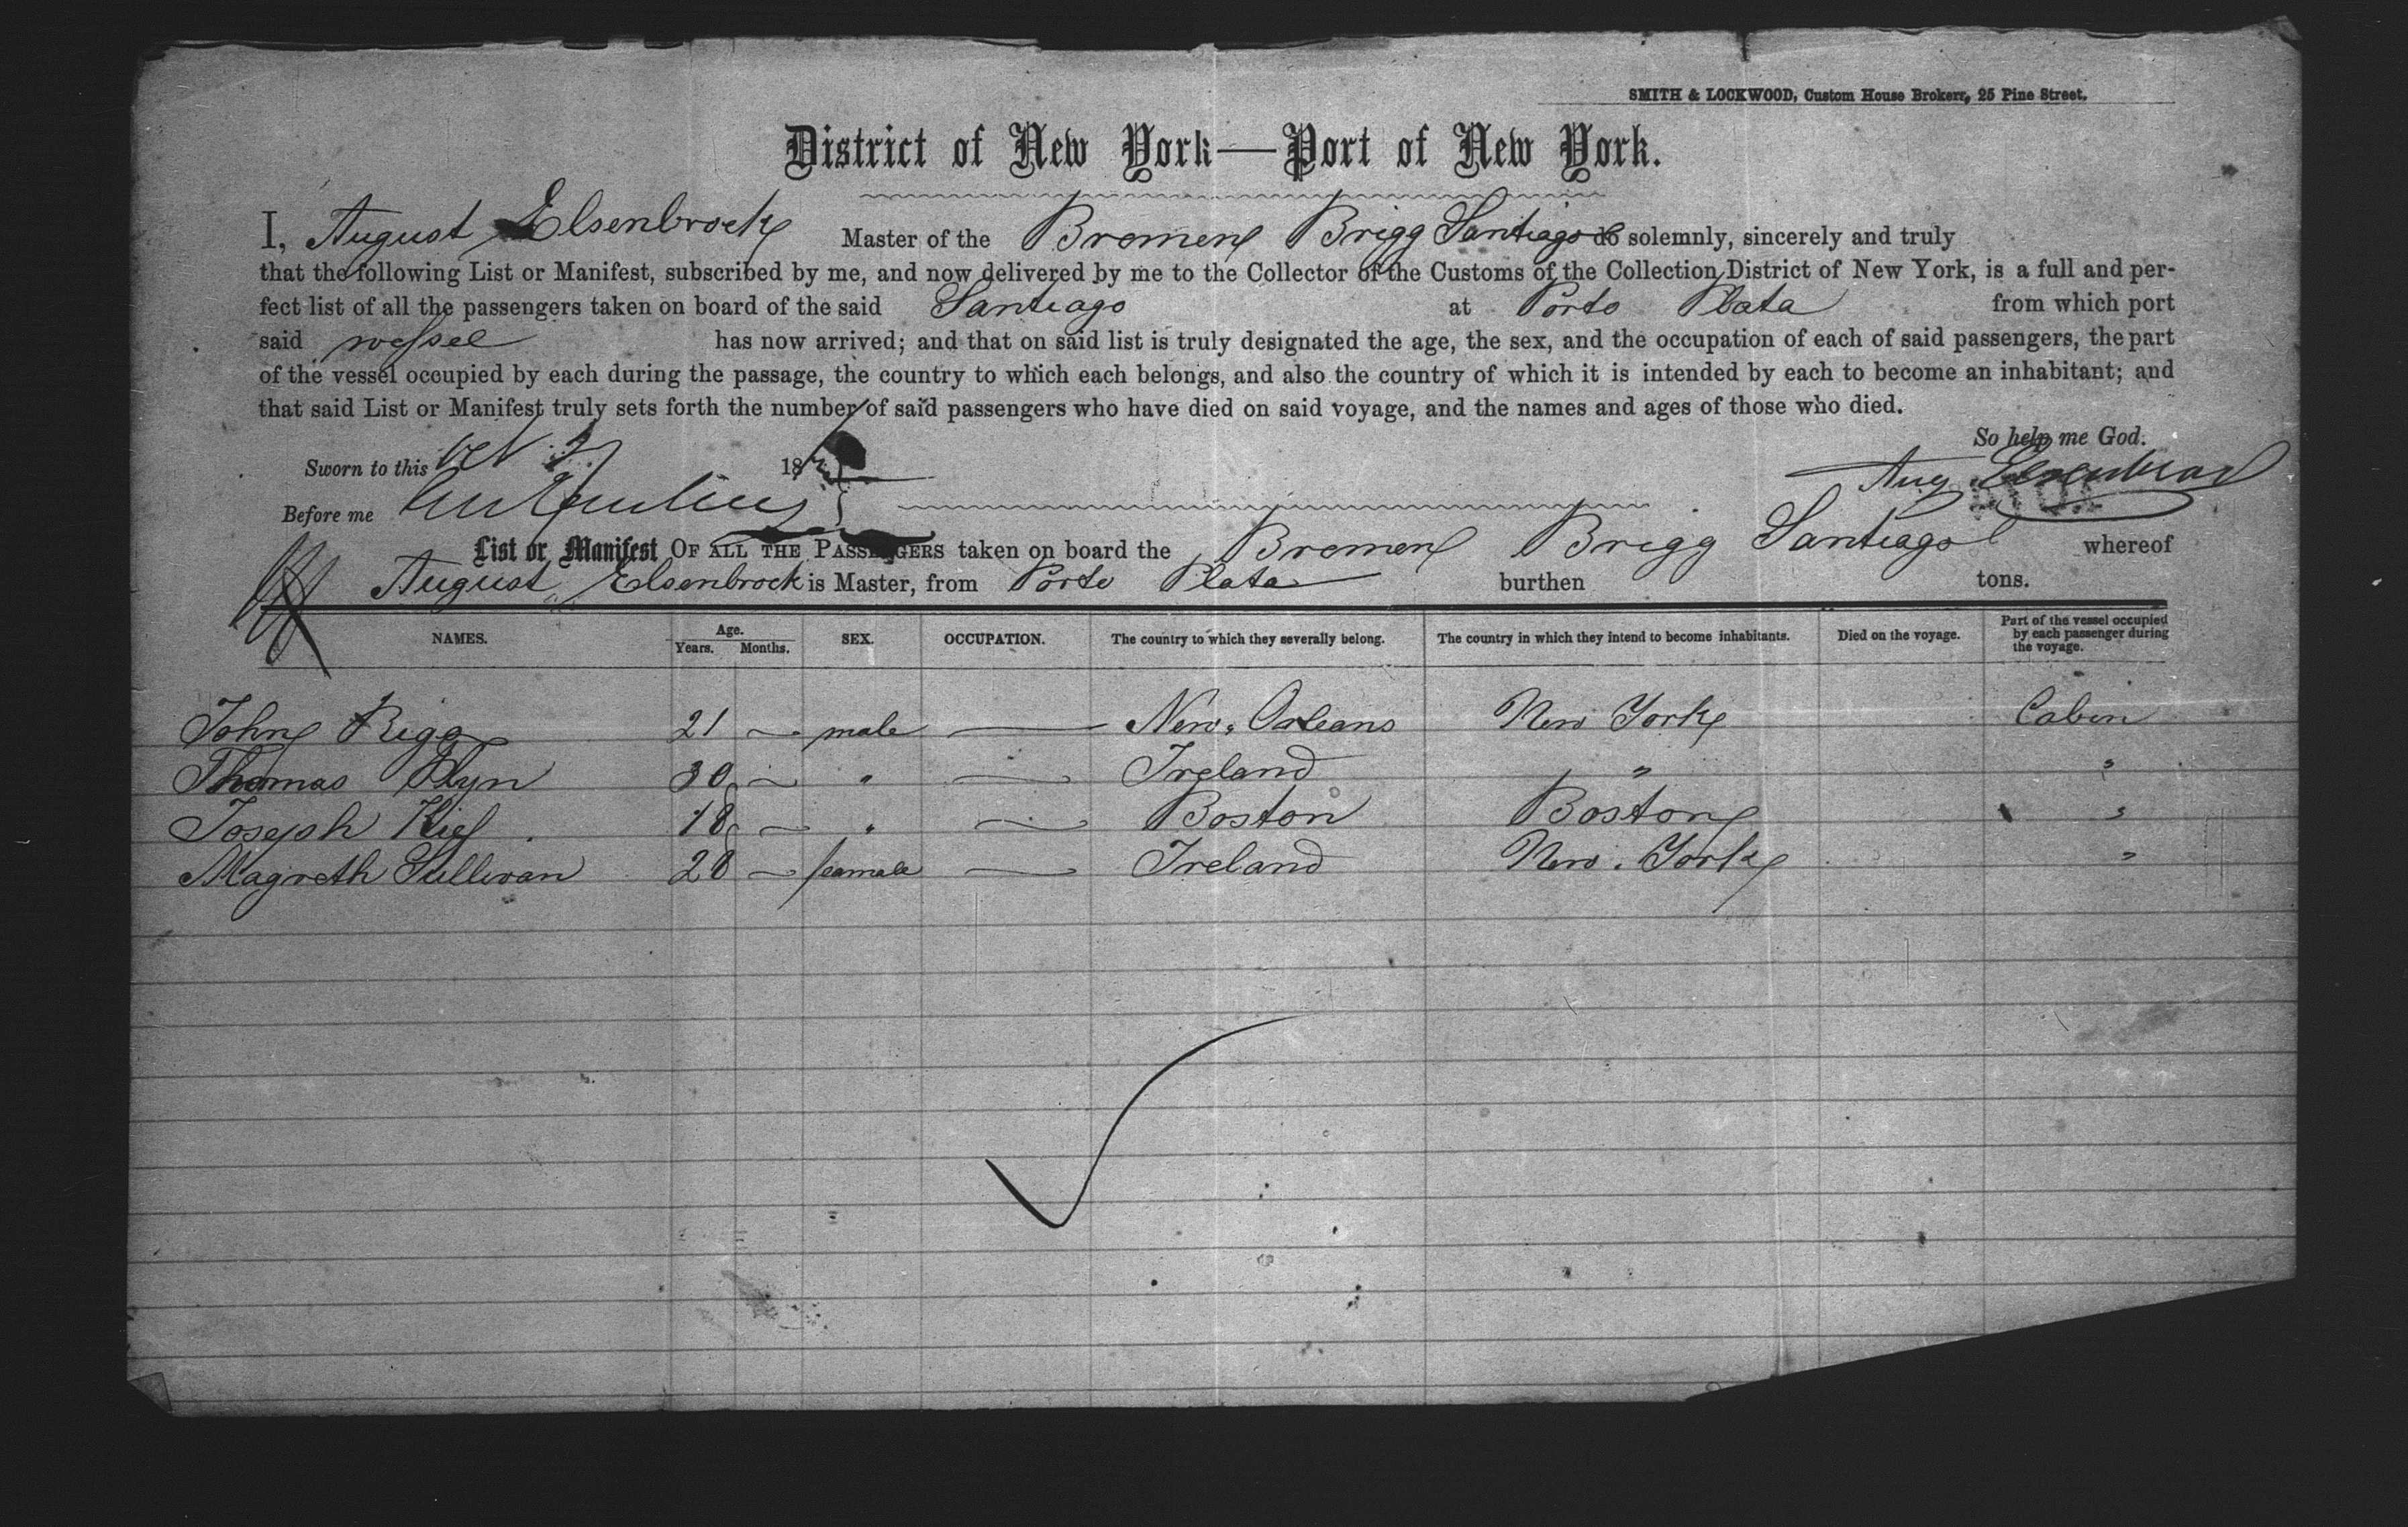 SMITH & LOCKWOOD, Custom House Brokers, 25 Pine Street.
District of New York—Port of New York.
I, August Elsenbrock Master of the Bremen Brigg Santiago do solemnly, sincerely and truly
that the following List or Manifest, subscribed by me, and now delivered by me to the Collector of the Customs of the Collection District of New York, is a full and per-
fect list of all the passengers taken on board of the said Santiago at Porto Plata from which port
said wessel has now arrived; and that on said list is truly designated the age, the sex, and the occupation of each of said passengers, the part
of the vessel occupied by each during the passage, the country to which each belongs, and also the country of which it is intended by each to become an inhabitant; and
that said List or Manifest truly sets forth the number of said passengers who have died on said voyage, and the names and ages of those who died.
So help me God.
Sworn to this 18
Aug Elsenbrock
Before me
List or Manifest OF ALL THE PASSENGERS taken on board the Bremen Brigg Santiago whereof
August Elsenbrock is Master, from Porto Plata burthen tons.
NAMES. Age. Years. Months. SEX. OCCUPATION. The country to which they severally belong. The country in which they intend to become inhabitants. Died on the voyage. Part of the vessel occupied by each passenger during the voyage.
John Rigg 21 — male — New. Orleans New York Cabin
Thomas Flyn 30 — " — Ireland " "
Joseph 18 — " — Boston Boston "
Magreth Sullivan 28 — feamale — Ireland New. York "